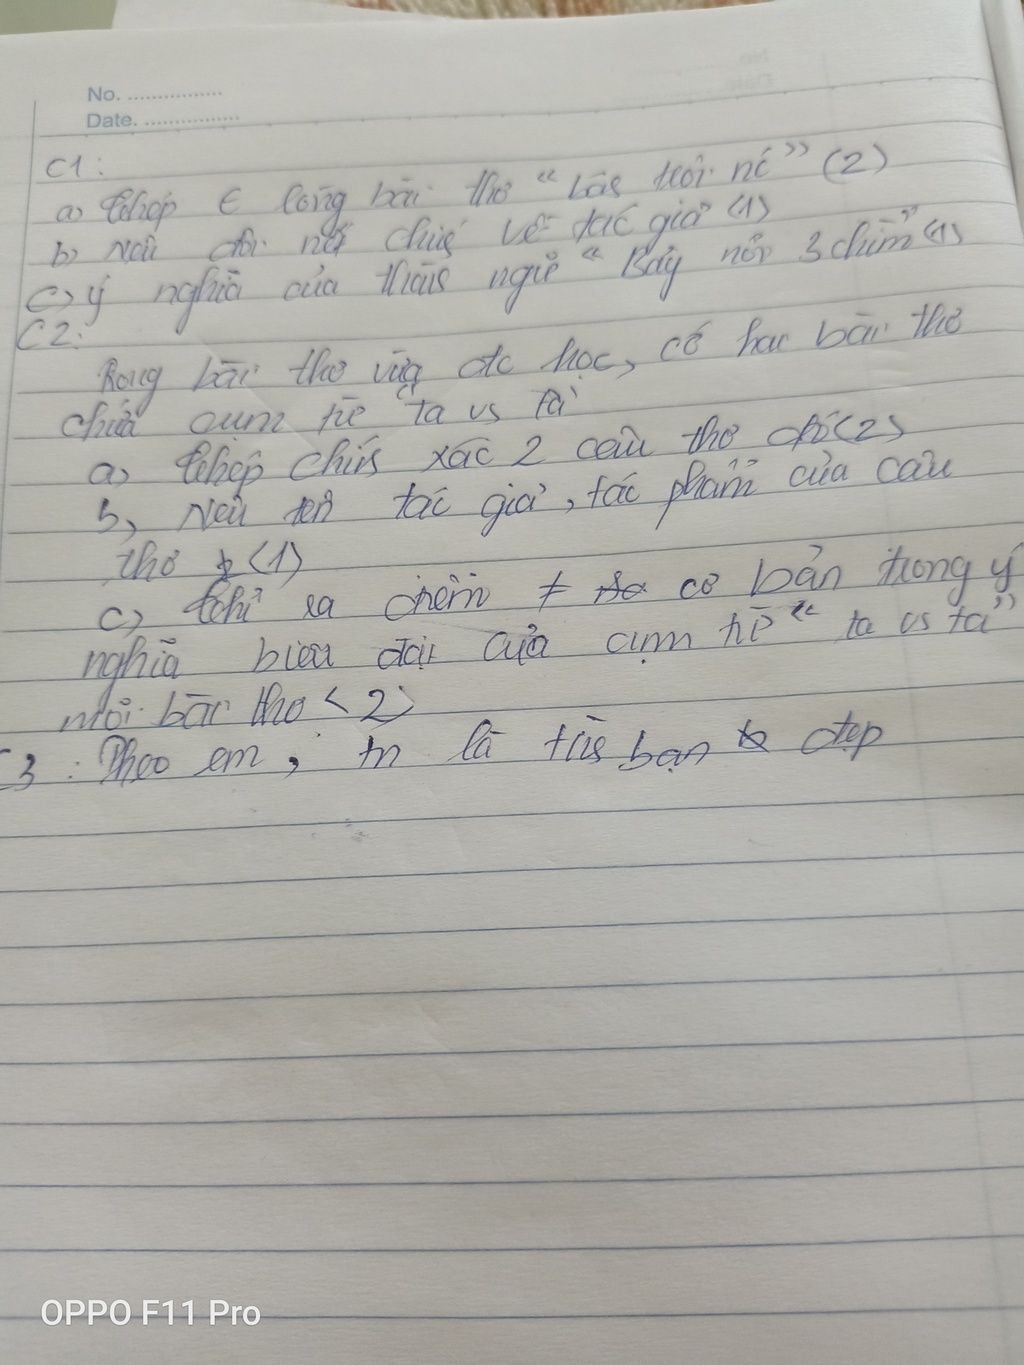 No. ................
Date. ................
C1:
a) Chép € lòng bài thơ “bás trôi nc” (2)
b) Nêu đôi nét chís về tác giả (1)
c) ý nghĩa của thàs ngữ “Bảy nổi 3 chìm” (1)
C2:
Rong bài thơ vừa đc học, có hai bài thơ
chứa cụm từ ta vs ta
a) Chép chís xác 2 câu thơ đó (2)
b, Nêu tên tác giả, tác phẩm của câu
thơ (1)
c) Chỉ ra điểm ≠ cơ bản trong ý
nghĩa biểu đạt của cụm từ “ta vs ta”
mỗi bài thơ (2)
C3: Theo em, tn là tìs bạn đẹp
OPPO F11 Pro